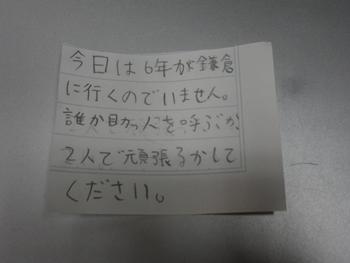 今日は6年が鎌倉
に行くのでいません。
誰か助っ人を呼ぶか
2人で頑張るかして
ください。